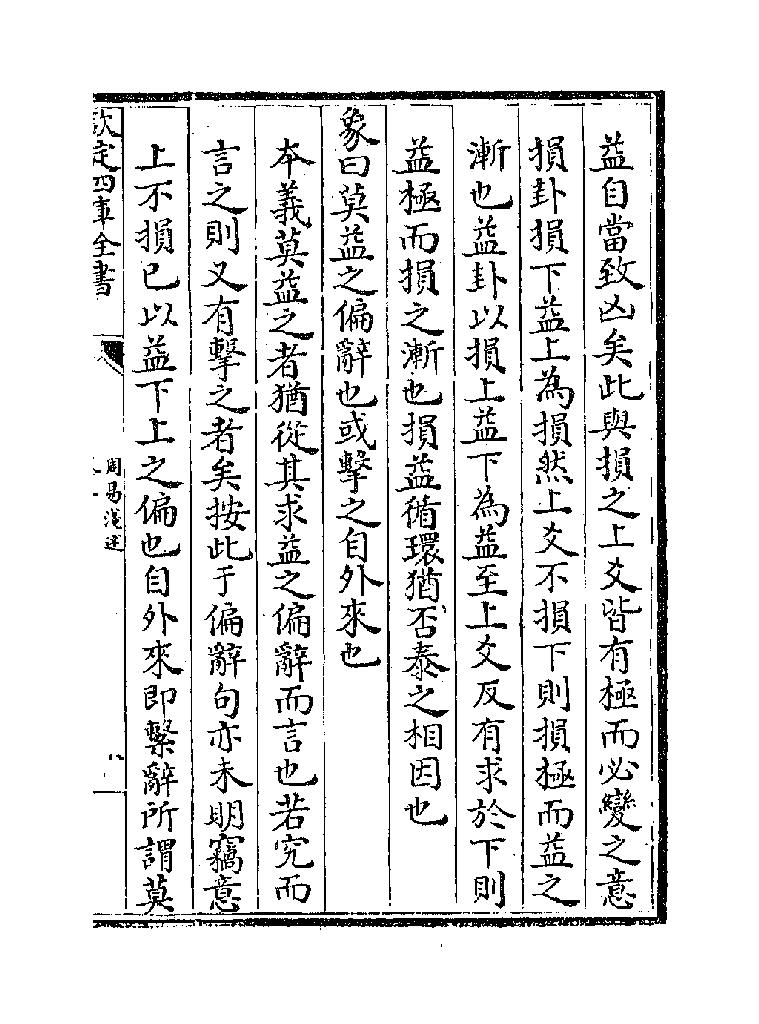 益自當致凶矣此與損之上爻皆有極而必變之意
損卦損下益上為損然上爻不損下則損極而益之
漸也益卦以損上益下為益至上爻反有求於下則
益極而損之漸也損益循環猶否泰之相因也
象曰莫益之偏辭也或擊之自外來也
本義莫益之者猶從其求益之偏辭而言也若究而
言之則又有擊之者矣按此于偏辭句亦未明竊意
上不損已以益下上之偏也自外來即繫辭所謂莫
欽定四庫全書
周易淺述